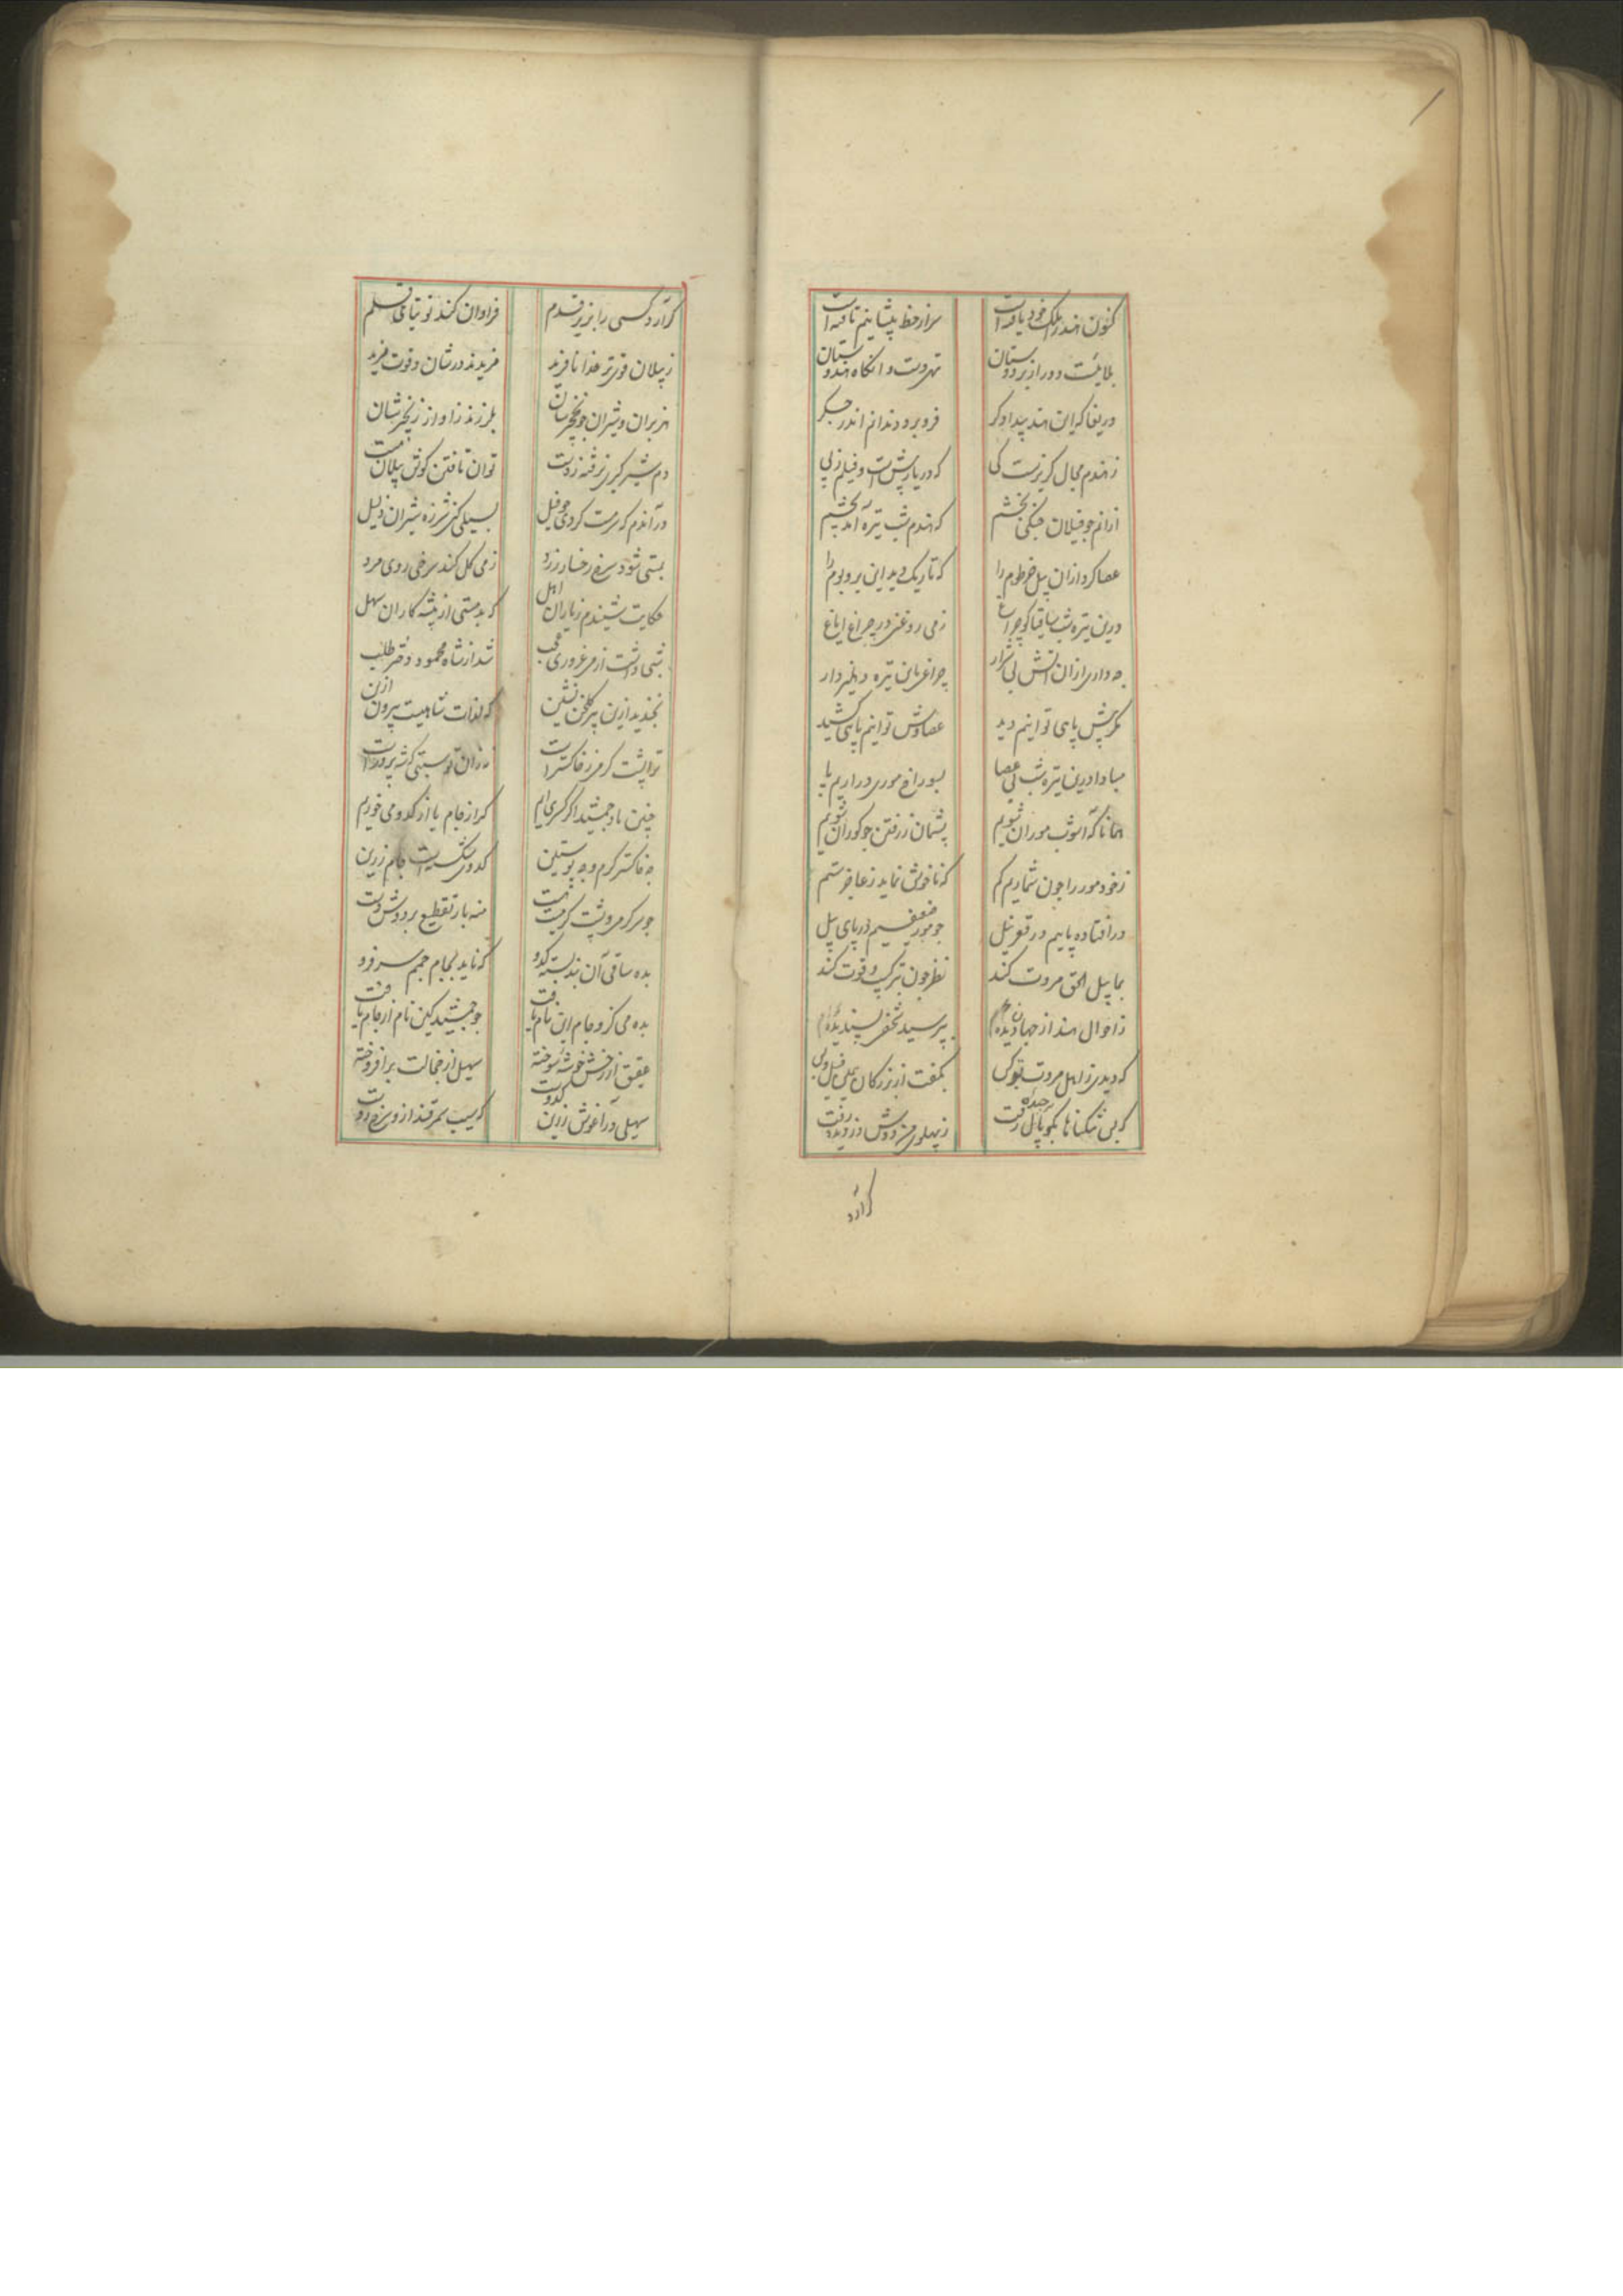 کنون هند را ملک خود یافته است سر از خط پیشانیم تافته است
بلائیست دور از بر دوستان تهی دست و آنگاه هندوستان
دریغا که این هند بیدادگر فرو برد دندانم اندر جگر
ز هندم مجال گریزست کی که دریا به پیش است و فیلم ز پی
ازانم چو فیلان جنگی بخشم که هندم شب تیره آمد بچشم
عصا کرد ازان پیل خرطوم را که تاریک دید این بر و بوم را
درین تیره شب ساقیا کو چراغ ز می روغنی در چراغ ایاغ
چه داری ازان آتش بی شرار چراغ رهان تیره در رهگذار
مگر پیش پای توانیم دید عصاوش توانیم پای کشید
مبادا درین تیره شب بی عصا بسوراخ موری در اریم پا
همانا که آشوب موران شویم پشیمان ز رفتن چو کوران شویم
ز خود مور را چون شماریم کم که ناخوش نماید ز عاجز ستم
در افتاده پاییم در قعر نیل چو مور ضعیفیم در پای پیل
بما پیل الحق مروت کند نظر چون بترکیب و قوت کند
ز احوال هند از جهاندیده‌ام بپرسید شخصی پسندیده‌ام
که دیدی ز اهل مروت تو کس بگفت از بزرگان همی فیل و بس
که بی شکنانها بکوپال رفت ز پهلوی من دوش دزدیده رفت
گر آرد
گر آرد کسی را بزیر قدم فراوان کند توتیای قلم
ز پیلان قوی‌تر خدا نافرید فرید ندر شان و قوت فرید
هژبران و شیران چو نخچیرشان بلرزند ز آواز زنجیرشان
دم شیر گیری نرفته ز دست توان تافتن گوش پیلان مست
در آندم که سرمست کردی چو فیل بسیلی کنی شرزه شیران ذلیل
بمستی شود سرخ رخسار زرد ز می گل کند سرخی روی مرد
حکایت شنیدم ز یاران اهل که بدمستی از پیشه کاران سهل
شبی داشت از می غروری عجب شد از شاه محمود دختر طلب
بخندید ازین پیر گلخن نشین که لذات شاهیست بیرون ازین
ترا پشت گرمی ز خاکستر است
چنین باد جمشید اگر کسری ایم گر از جام یا از کدو می خوریم
چه خاکستر گرم و چه پوستین کدوی شکسته است جام زرین
چو سر گرم و پشت گرمیت هست منه بار تقطیع بر دوش دست
بده ساقی آن بند بسته کدو که ناید بجام جمم سر فرو
بده می کزو جام این نام یافت چو جمشید کین نام از جام یافت
عقیق از رخش خوشه سوخته سهیل از خجالت بر افروخته
سهیلی در آغوش زرین کدوست که سیب سمرقند ازو سرخ روست